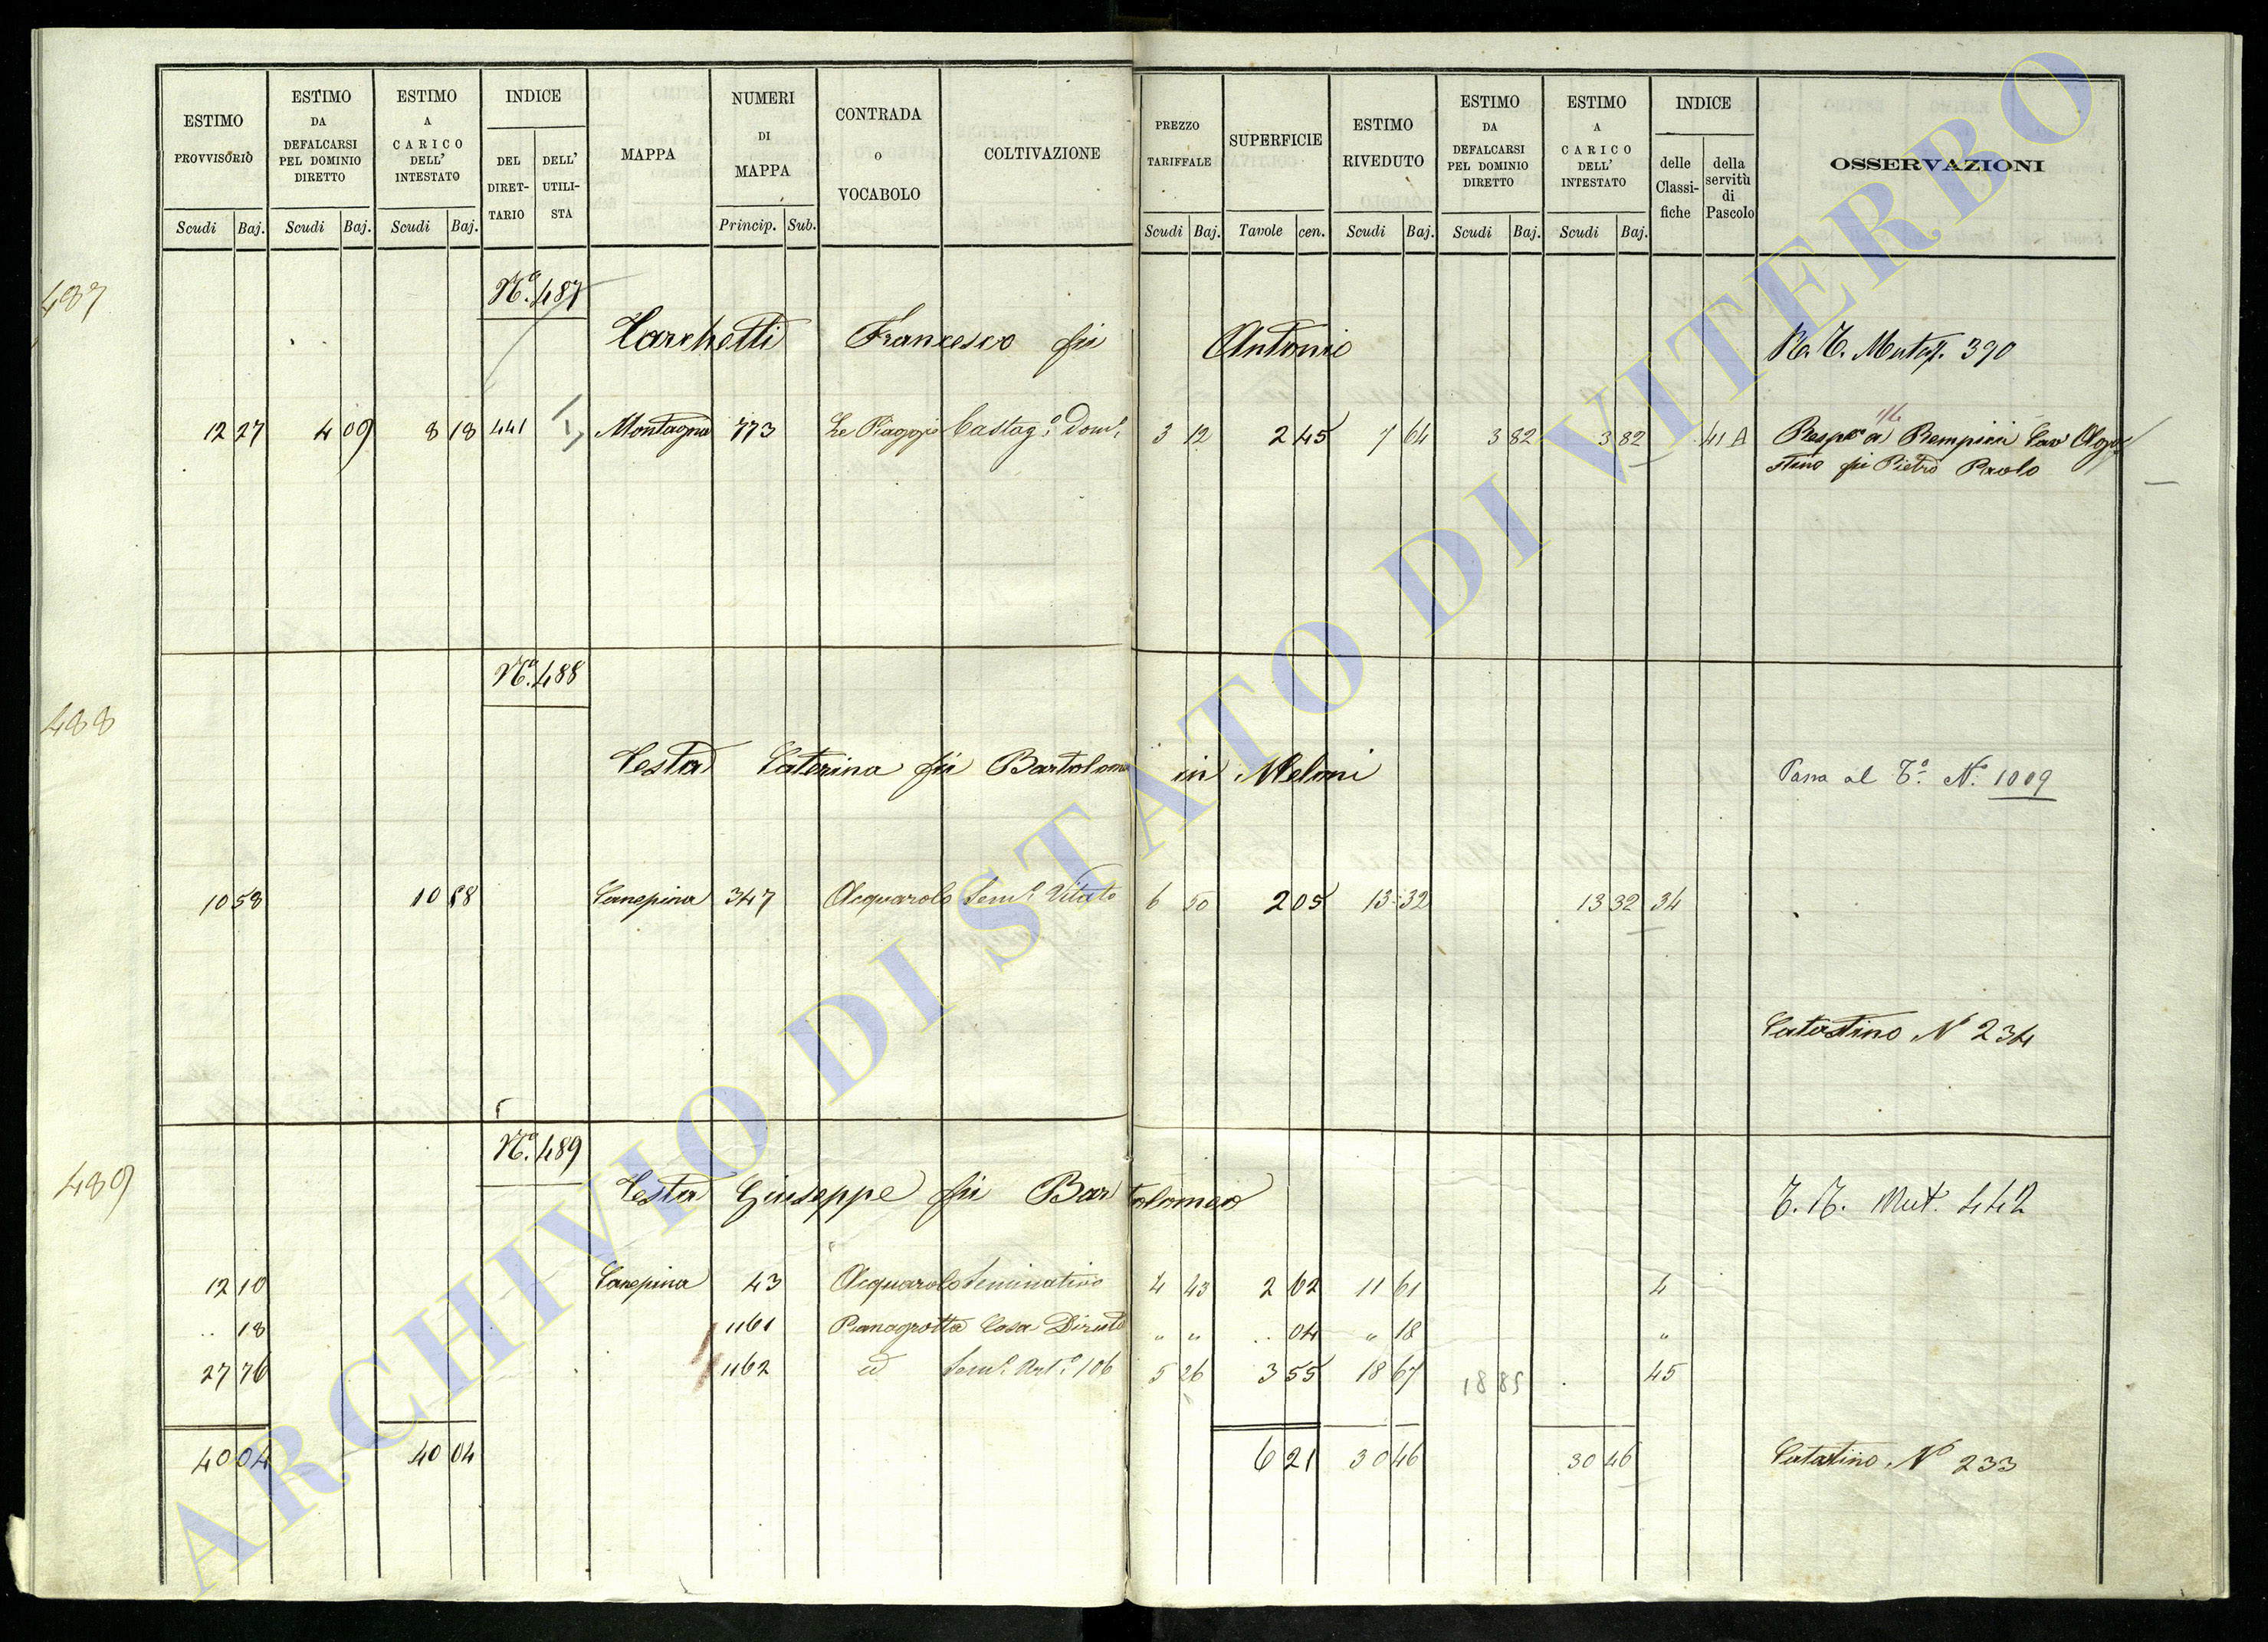 ESTIMO PROVVISORIO Scudi Baj.
ESTIMO DA DEFALCARSI PEL DOMINIO DIRETTO Scudi Baj.
ESTIMO A CARICO DELL' INTESTATO Scudi Baj.
INDICE DEL DIRET-TARIO DELL' UTILI-STA
MAPPA
NUMERI DI MAPPA Princip. Sub.
CONTRADA O VOCABOLO
COLTIVAZIONE
PREZZO TARIFFALE Scudi Baj.
SUPERFICIE Tavole cen.
ESTIMO RIVEDUTO Scudi Baj.
ESTIMO DA DEFALCARSI PEL DOMINIO DIRETTO Scudi Baj.
ESTIMO A CARICO DELL' INTESTATO Scudi Baj.
INDICE delle Classi-fiche della servitù di Pascolo
OSSERVAZIONI
487
N.º 487
Tarchetti Francesco fu Antonio
12 27 4 09 8 18 441 Montagna 773 Le Piaggie Castag.º Dom.º 3 12 2 45 7 64 3 82 3 82 41 A Resp.e a Rempicci Cav Ago
stino fu Pietro Paolo
488
N.º 488
Testa Caterina fu Bartolomeo in Meloni Passa al T.º N.º 1009
10 58 10 58 Canepina 347 Acquarolo Sem.º Vitato 6 50 2 05 13 32 13 32 34
Catastino Nº 234
489
N.º 489
Testa Giuseppe fu Bartolomeo T. T. Mut. 442
12 10 Canepina 43 Acquarolo Seminativo 4 43 2 62 11 61 4
.. 18 1161 Pianagrotta Casa Diruta " " .. 04 " 18 "
27 76 1162 id Sem.º Art.º 106 5 26 3 55 18 67 18 85 45
40 04 40 04 6 21 30 46 30 46 Catastino Nº 233
ARCHIVIO DI STATO DI VITERBO